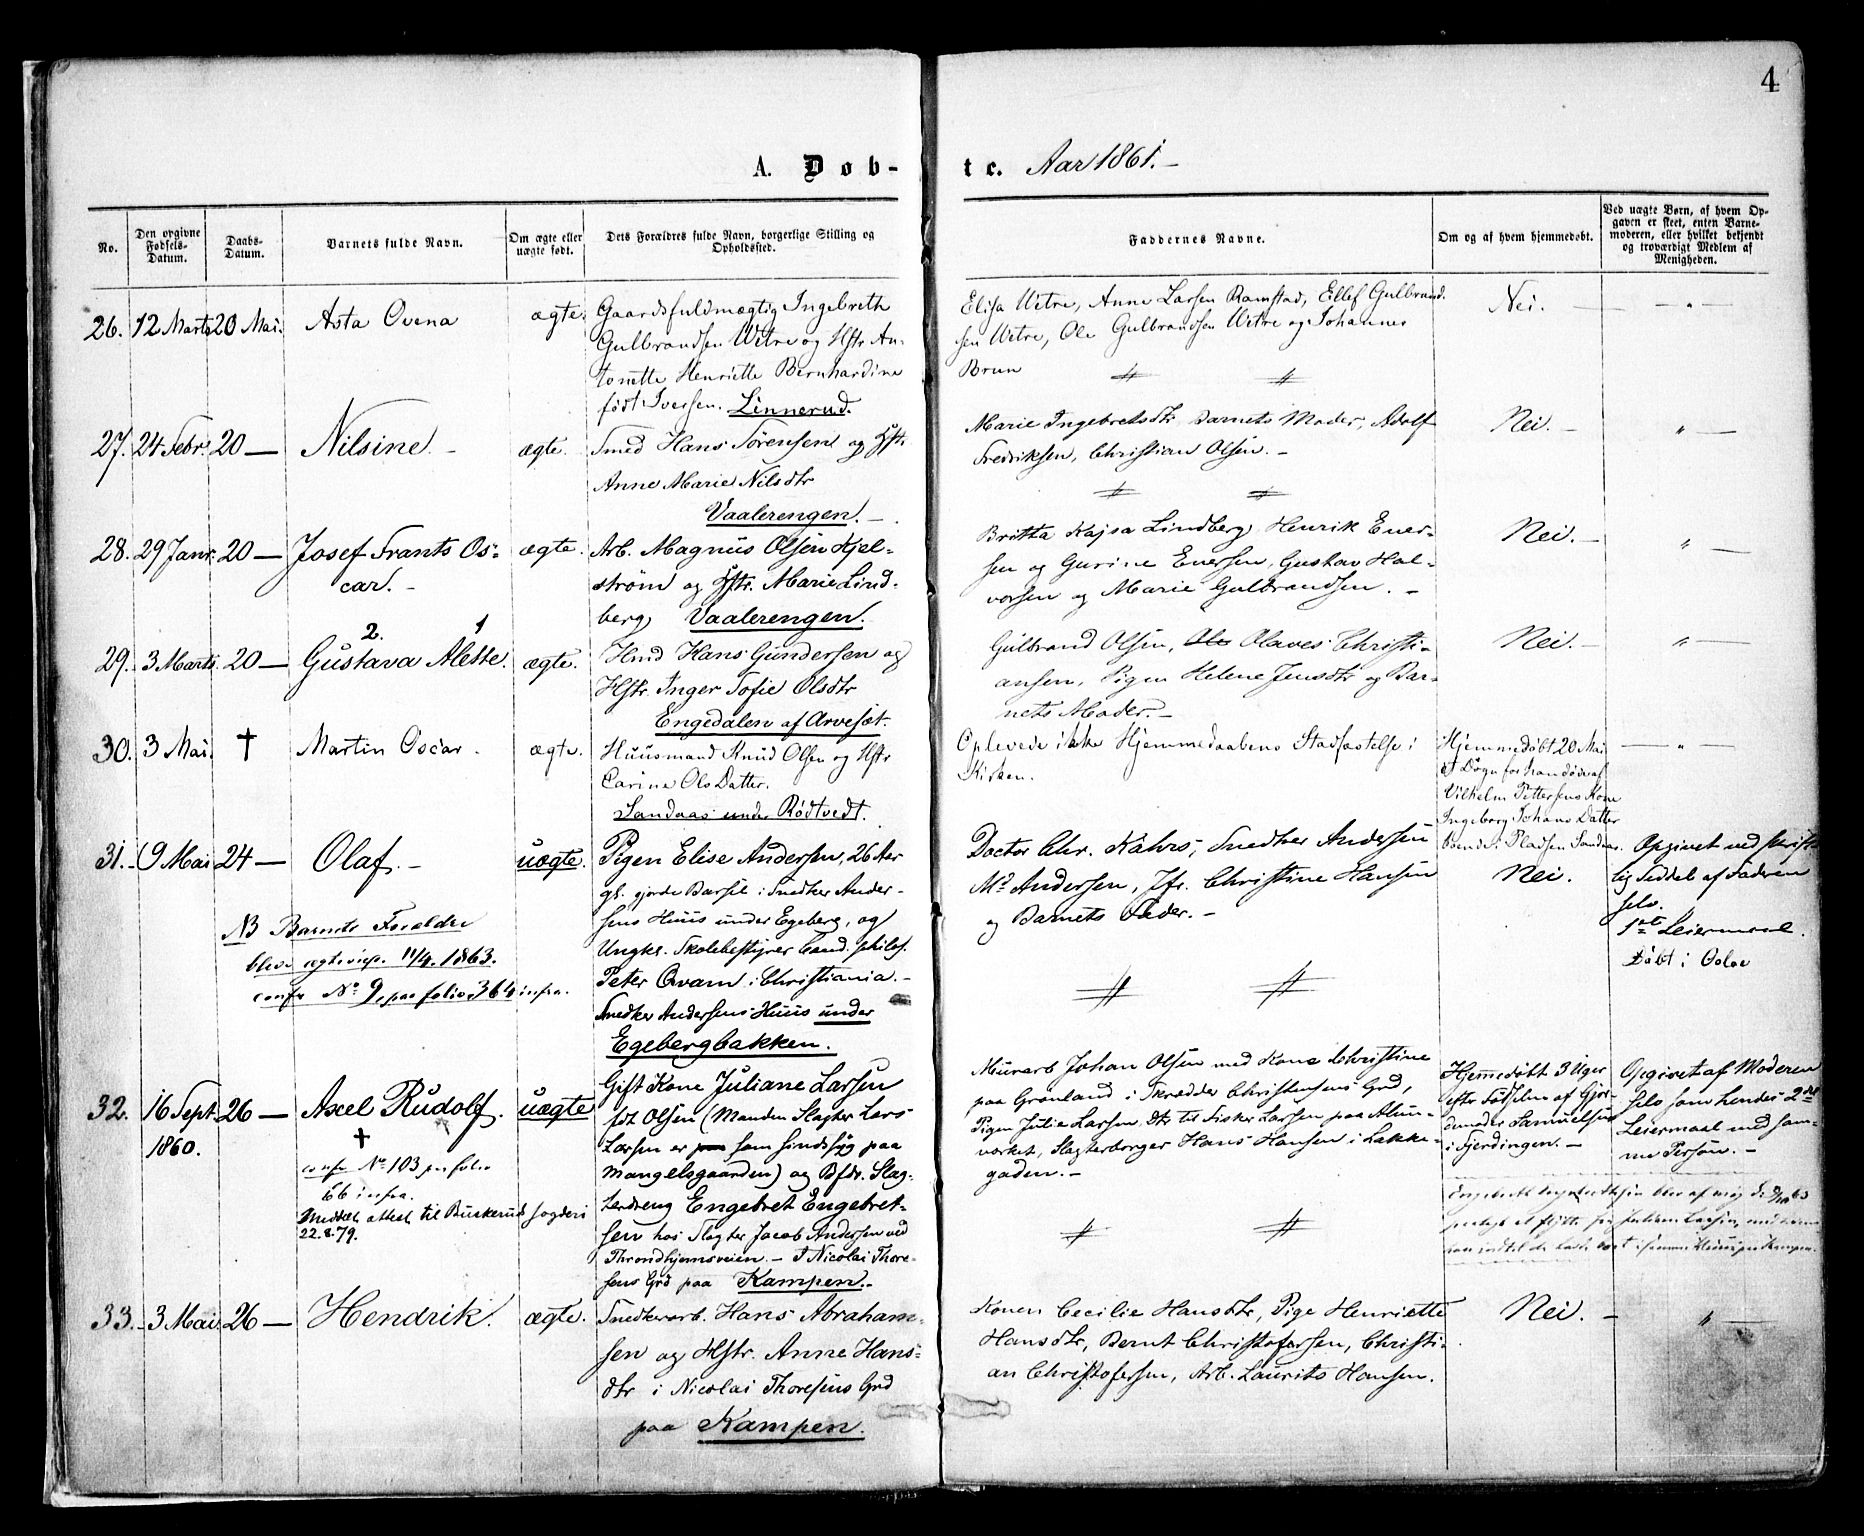 4
A. Døb-
te. Aar 1861.-
No.
Den opgivne Fødsels-Datum.
Daabs-Datum.
Barnets fulde Navn.
Om ægte eller uægte født.
Dets Forældres fulde Navn, borgerlige Stilling og Opholdssted.
Faddernes Navne.
Om og af hvem hjemmedøbt.
Ved uægte Børn, af hvem Opgaven er skeet, enten Barnemoderen, eller hvilket bekjendt og troværdigt Medlem af Menigheden.
26. 12 Marts 20 Mai. Asta Ovena ægte.
Gaardsfuldmægtig Ingebreth
Gulbrandsen Wetre og Hstr. An-
tonette Henriette Bernhardine
født Iversen. Linnerud.
Elisa Wetre, Anne Larsen Ramstad, Ellef Gulbrand-
sen Wetre, Ole Gulbrandsen Wetre og Johannes
Brun
Nei. — " —
27. 24 Febr. 20 — Nilsine. - ægte.
Smed Hans Sørensen og Hstr.
Anne Marie Nilsdtr
Vaalerengen. -
Marie Ingebretsdtr. Barnets Moder, Adolf
Fredriksen, Christian Olsen. -
Nei. - " —
28. 29 Janr. 20 — Josef Frants Os-
car. -
ægte.
Arb. Magnus Olsen Kjel-
strøm og Hstr. Marie Lind-
berg Vaalerengen.
Britta Kajsa Lindberg, Henrik Ener-
sen og Gurine Enersen, Gustav Hal-
vorsen og Marie Gulbrandsen. -
Nei. - " —
2. 1
29. 3 Marts 20 — Gustava Alette. ægte.
Hmd Hans Gundersen og
Hstr. Inger Sofie Olsdtr
Engedalen af Arvesæt.
Gulbrand Olsen, Ole Olaves Christi-
ansen, Pigen Helene Jensdtr og Bar-
nets Moder. -
Nei. - " —
30. 3 Mai. † Martin Oscar. ægte.
Huusmand Knud Olsen og Hstr
Carine Ols Datter.
Sandaas under Rødtvedt.
Oplevede ikke Hjemmedaabens Stadfæstelse i
Kirken.
Hjemmedøbt 20 Mai
Døgn før han døde af
Vilhelm Pettersens Kone
Ingeborg Johans Datter
boende i Pladsen Sandaas.
— " —
31. 9 Mai 24 — Olaf. - uægte.
Pigen Elise Andersen, 26 Aar
gl. gjorde Barsel i Snedker Ander-
sens Huus under Egeberg, og
Ungkr. Skolebestyrer Cand. philos.
Peter Qvam i Christiania. -
Snedker Andersens Huus under
Egebergbakken.
NB Barnets Forældre
bleve ægteviet 11/4. 1863.
confr No 9, paa folio 364 infra.
Doctor Chr. Kahrs, Snedker Andersen
Md Andersen, Jfr. Christine Hansen
og Barnets Fader. -
Nei.
Opgivet ved skrift-
lig Seddel af Faderen
selv.
1ste Leiermaal.
Døbt i Oslo
32. 16 Sept. 26 — Axel Rudolf. uægte
1860.
†
confr No 103 paa folio
66 infra.
Meddelt attest til Buskerud fogderi
22.8.79.
Gift Kone Juliane Larsen
fdt Olsen (Manden Slagter Lars
Larsen er paa som sindssyg paa
Mangelsgaarden) og Bfdr. Slag-
terdreng Engebret Engebret-
sen hos Slagter Jacob Andersen ved
Throndhjemsveien. - I Nicolai Thore-
sens Grd paa Kampen. -
Murarb Johan Olsen med Kone Christine
paa Grønland i Skredder Christensens Grd,
Pigen Julie Larsen, dtr til Fisker Larsen paa Alun-
værket, Slagterborger Hans Hansen i Lakke-
gaden. -
Hjemmedøbt 3 Uger
efter Fødselen af Gjor-
demoder Samuelsen
i Fjerdingen. -
Opgivet af Moderen
selv som hendes 2det
Leiermaal med sam-
me Person. -
33. - 3 Mai. 26 — Hendrik. ægte.
Snedkerarb. Hans Abraham-
sen og Hstr. Anne Hans-
dtr i Nicolai Thoresens Grd
paa Kampen.
Konen Cecilie Hansdtr, Pige Henriette
Hansdtr, Bernt Christofersen, Christi-
an Christofersen, Arb. Laurits Hansen.
Nei. - " —